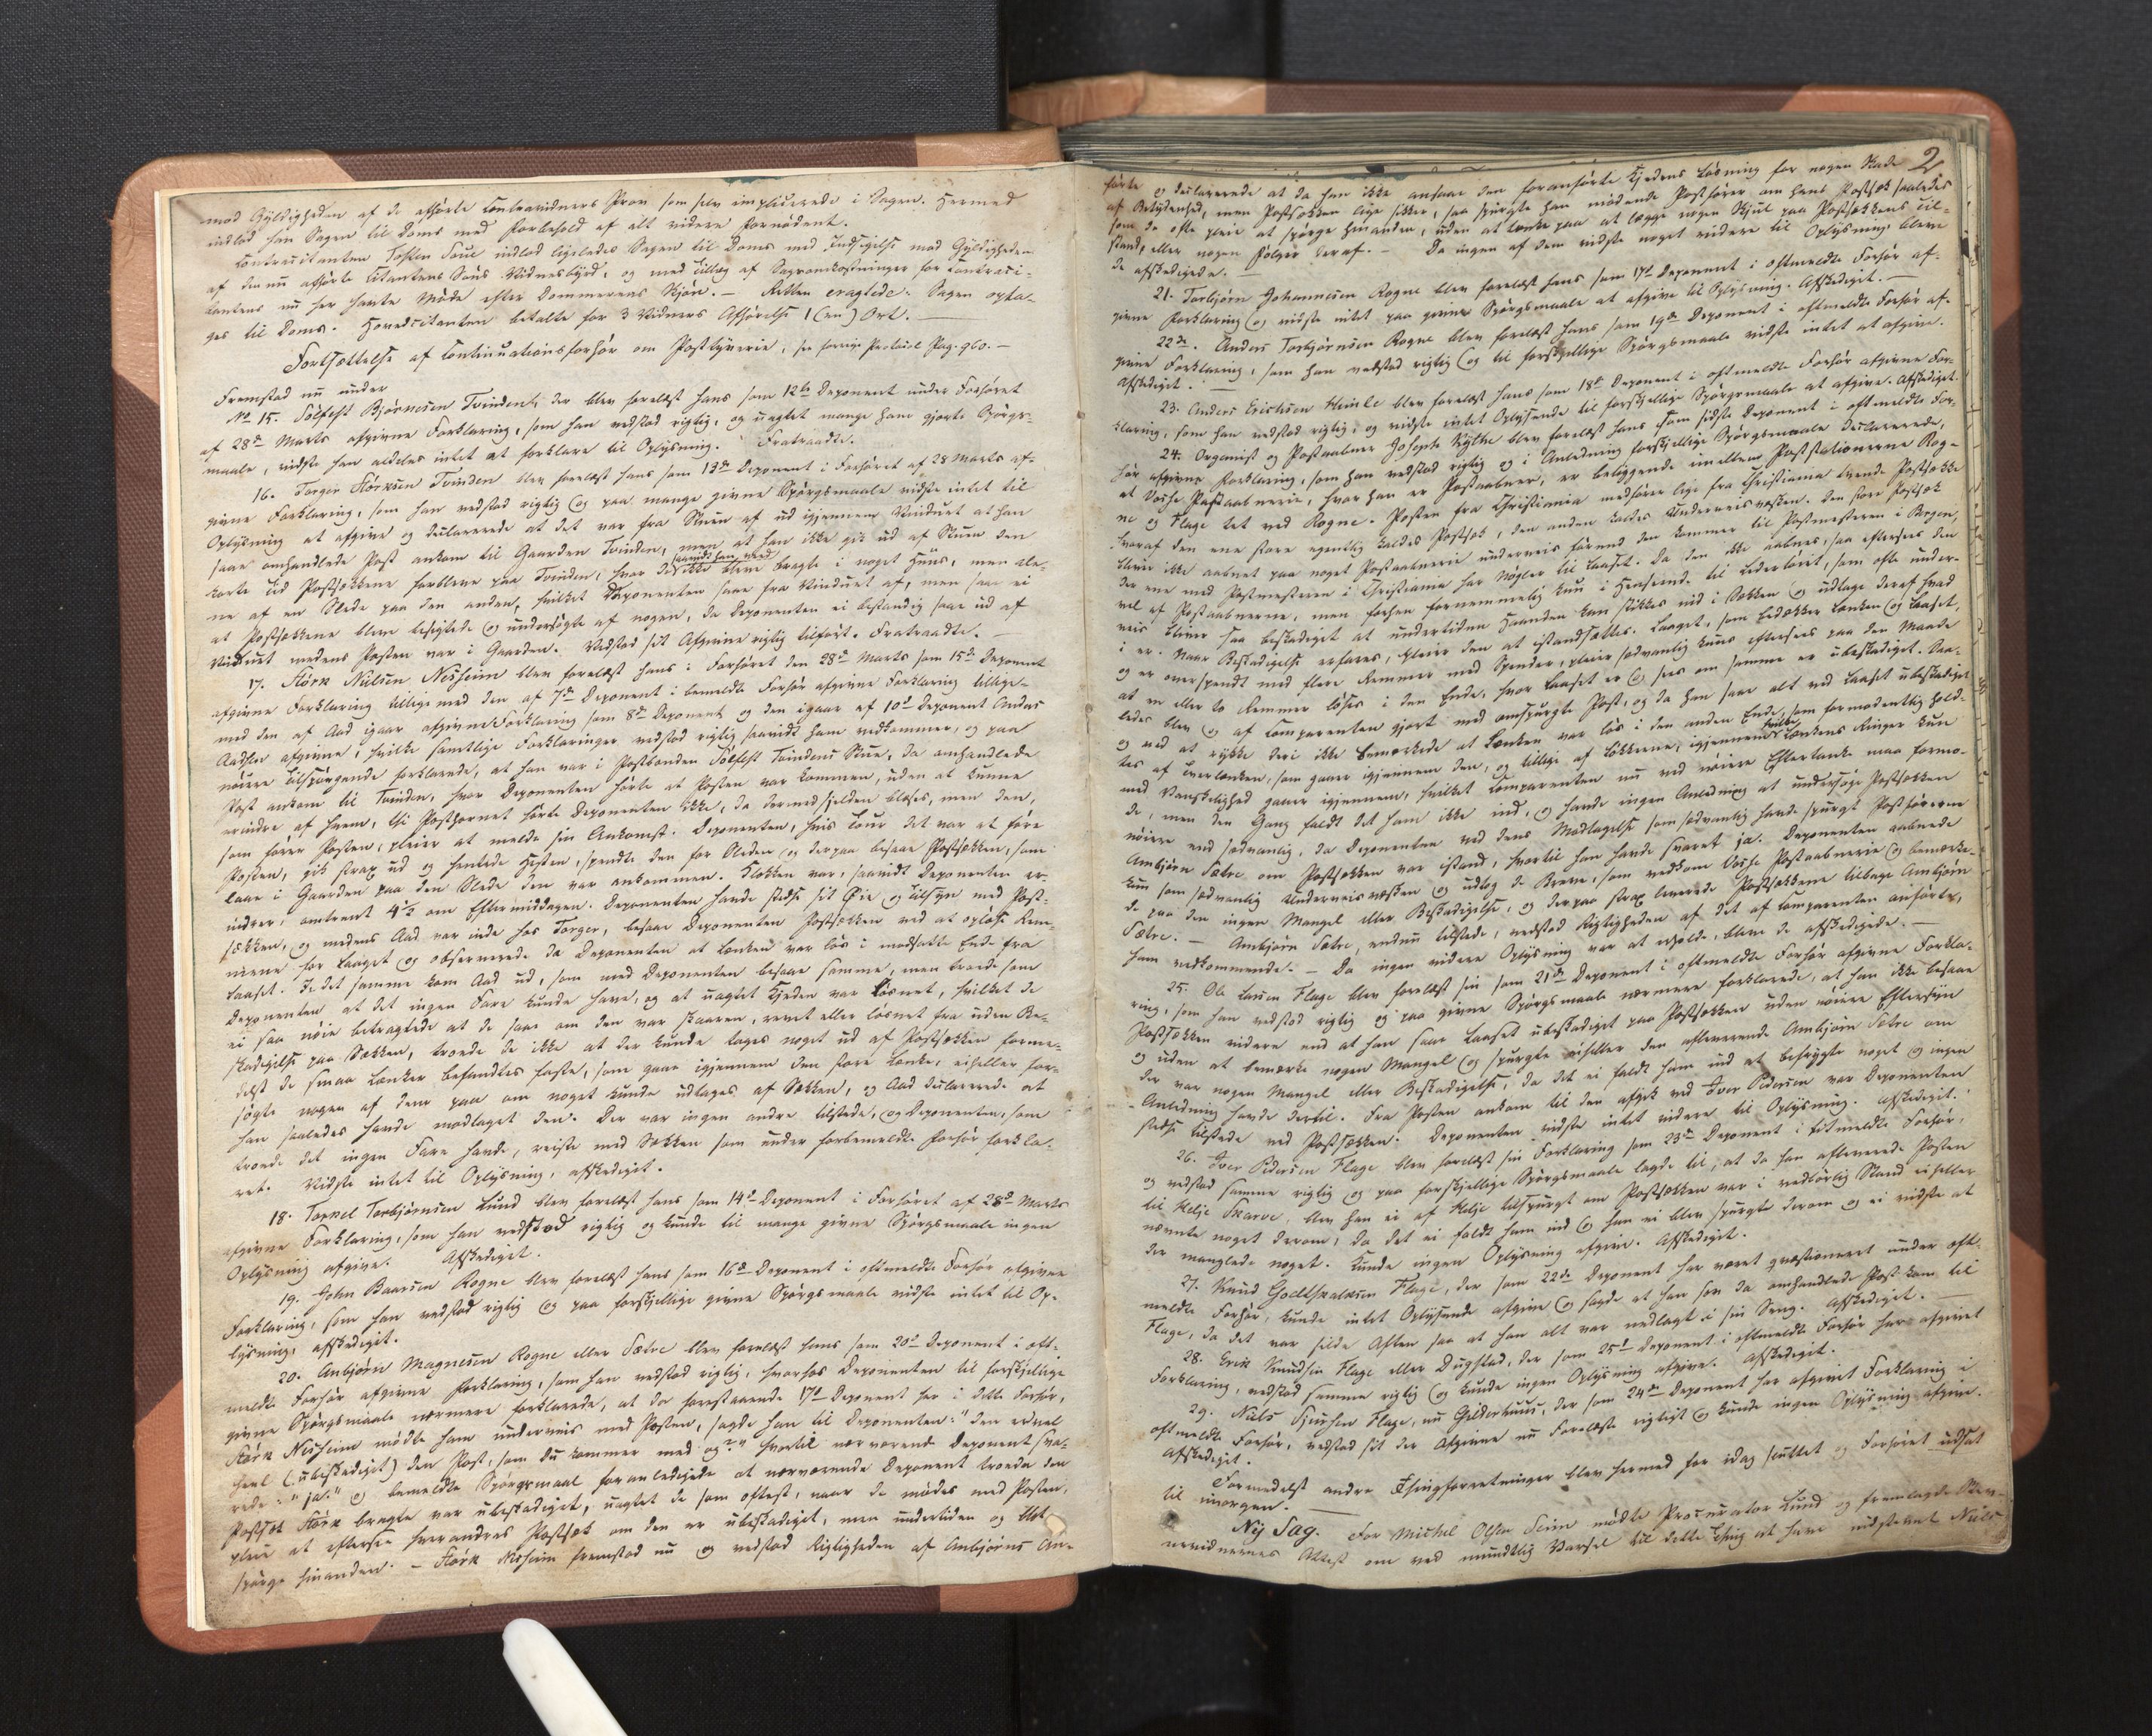 mod Gyldigheden af de afhørte Contravidners Prov som selv implicerede i Sagen. Hermed
indlod han Sagen til Doms med Forbehold af alt videre fornødent.
Contracitanten Tosten Sæue indlod ligeledes Sagen til Doms med Indsigelse mod Gyldigheden
af den nu afhørte Citantens Søns Vidnesbyrd, og med Tillæg af Sagsomkostninger for Contraci-
tantens nu her havte Møde efter Dommerens Skjøn. — Retten eragtede: Sagen opta-
ges til Doms. Hovedcitanten betalte for 3 Vidners Afhørelse 1 (en) Ort. —
Fortsættelse af Continuationsforhør om Posttyverie, se forrige Protocol Pag. 960. —
Fremstod nu under
No 15. Sølfest Bjørnesen Tvinden, der blev forelæst hans som 12te Deponent under Forhøret
af 28de Marts afgivne Forklaring, som han vedstod rigtig, og uagtet mange ham gjorte Spørgs-
maale, vidste han aldeles intet at forklare til Oplysning. Fratraadte.
16. Torger Størksen Tvinden blev forelæst hans som 13de Deponent i Forhøret af 28 Marts af-
givne Forklaring, som han vedstod rigtig og paa mange givne Spørgsmaale vidste intet til
Oplysning at afgive og declarerede at det var fra Stuen af ud igjennem Vinduet at han
saae omhandlede Post ankom til Gaarden Tvinden, men at han ikke gik ud af Stuen den
korte Tid Postsækkene forbleve paa Tvinden, hvor de saavidt han veed ikke bleve bragte i noget Huus, men ale-
ne af en Slede paa den anden, hvilket Deponenten saae fra Vinduet af, men saae ei
at Postsækkene bleve besigtede og undersøgte af nogen, da Deponenten ei bestandig saae ud af
Vinduet medens Posten var i Gaarden. Vedstod sit Afgivne rigtig tilført. Fratraadte. —
17. Størk Nilsen Nesheim blev forelæst hans i Forhøret den 28de Marts som 15de Deponent
afgivne Forklaring tilligemed den af 7de Deponent i bemeldte Forhør afgivne Forklaring tillige-
med den af Aad igaar afgivne Forklaring som 8de Deponent og den igaar af 10de Deponent Anders
afgivne, hvilke samtlige Forklaringer vedstod rigtig saavidt ham vedkommer, og paa
nøiere Tilspørgende forklarede, at han var i Postbonden Sølfest Tvindens Stue, da omhandlede
Post ankom til Tvinden, hvor Deponenten hørte at Posten var kommen, uden at kunne
erindre af hvem, thi Posthornet hørte Deponenten ikke, da dermed sjelden blæses, men den,
som fører Posten, pleier at melde sin Ankomst. Deponenten, hvis Tour det var at føre
Posten, gik strax ud og hentede Hesten, spendte den for Sleden og derpaa besaae Postsækken, som
laae i Gaarden paa den Slede den var ankommen. Klokken var, saavidt Deponenten er-
indrer, omtrent 4½ om Eftermiddagen. Deponenten havde stedse sit Øie og Tilsyn med Post-
sækken, og medens Aad var inde hos Torger, besaae Deponenten Postsækken ved at opløse Rem-
mene for Laaget og observerede da Deponenten at Lænken var løs i modsatte Ende fra
Laaset. I det samme kom Aad ud, som med Deponenten besaae samme, men troede som
Deponenten at det ingen Fare kunde have, og at uagtet Kjeden var løsnet, hvilket de
ei saa nøie betragtede at de saae om den var skaaren, revet eller løsnet fra uden Be-
skadigelse paa Sækken, troede de ikke at der kunde tages noget ud af Postsækken forme-
delst de smaa Lænker befandtes faste, som gaae igjennem den store Lænke, eiheller for-
søgte nogen af dem paa om noget kunde udtages af Sækken, og Aad declarerede at
han saaledes havde modtaget den. Der var ingen andre tilstede, og Deponenten, som
troede det ingen Fare havde, reiste med Sækken som under forbemeldte Forhør forkla-
ret. Vidste intet til Oplysning, afskediget.
18. Torkel Torbjørnsen Lund blev forelæst hans som 14de Deponent i Forhøret af 28de Marts
afgivne Forklaring, som han vedstod rigtig og kunde til mange givne Spørgsmaale ingen
Oplysning afgive. Afskediget.
19. John Baarsen Rogne blev forelæst hans som 16de Deponent i oftmeldte Forhør afgivne
Forklaring, som han vedstod rigtig og paa forskjellige givne Spørgsmaale vidste intet til Op-
lysning, afskediget.
20. Ambjørn Magnesen Rogne eller Sætre blev forelæst hans som 20de Deponent i oft-
meldte Forhør afgivne Forklaring, som han vedstod rigtig, hvorhos Deponenten til forskjellige
givne Spørgsmaale nærmere forklarede, at da forestaaende 17de Deponent her i dette Forhør,
Størk Nesheim mødte ham underveis med Posten, sagde han til Deponenten: "den er vel
heel (ubeskadiget) den Post, som Du kommer med og?" hvortil nærværende Deponent sva-
rede: "ja." og bemeldte Spørgsmaal foranledigede at nærværende Deponent troede den
Postsæk Størk bragte var ubeskadiget, uagtet de som oftest, naar de mødes med Posten,
pleie at eftersee hverandres Postsæk om den er ubeskadiget, men undertiden og blot
spørge hinanden. — Størk Nesheim fremstod nu og vedstod Rigtigheden af Ambjørns An-
2
førte og declarerede at da han ikke ansaae den foranførte Kjedens Løsning for nogen Skade
af Betydenhed, men Postsækken lige sikker, saa spurgte han mødende Postfører om hans Postsæk saaledes
som de ofte pleie at spørge hinanden, uden at tænke paa at lægge nogen Skjul paa Postsækkens Til-
stand, eller nogen Følger deraf. — Da ingen af dem vidste noget videre til Oplysning bleve
de afskedigede. —
21. Torbjørn Johannesen Rogne blev forelæst hans som 17de Deponent i oftmeldte Forhør af-
givne Forklaring og vidste intet paa givne Spørgsmaale at afgive til Oplysning. Afskediget. —
22de. Anders Torbjørnsen Rogne blev forelæst hans som 19de Deponent i oftmeldte Forhør af-
givne Forklaring, som han vedstod rigtig og til forskjellige Spørgsmaale vidste intet at afgive.
Afskediget. —
23. Anders Erichsen Hemle blev forelæst hans som 18de Deponent i oftmeldte Forhør afgivne For-
klaring, som han vedstod rigtig, og vidste intet Oplysende til forskjellige Spørgsmaale at afgive. Afskediget.
24. Organist og Postaabner Joseph Kylke blev forelæst hans som sidste Deponent i oftmeldte For-
hør afgivne Forklaring, som han vedstod rigtig og i Anledning forskjellige Spørgsmaale declarerede,
at Vosse Postaabnerie, hvor han er Postaabner, er beliggende imellem Poststationerne Rog-
ne og Flage tet ved Rogne. Posten fra Christiania medfører lige fra Christiania tvende Postsække
hvoraf den ene store egentlig kaldes Postsæk, den anden kaldes Underveisvæsken. Den store Postsæk
bliver ikke aabnet paa noget Postaabnerie underveis førend den kommer til Postmesteren i Bergen,
der ene med Postmesteren i Christiania har Nøgler til Laaset. Da den ikke aabnes, saa eftersees den
vel af Postaabnerne, men forhen fornemmelig kun i Henseende til Lædertøiet, som ofte under-
veis bliver saa beskadiget at undertiden Haanden kan stikkes ind i Sækken og udtage deraf hvad
i er. Naar Beskadigelse erfares, pleier den at istandsættes. Laaget, som bedækker Lænken og Laaset,
og er overspendt med flere Remmer med Spender, pleier sædvanlig kuns eftersees paa den Maade
at een eller to Remmer løses i den Ende, hvor Laaset er og sees om samme er ubeskadiget. Saa-
ledes blev og af Comparenten gjort med omspurgte Post, og da han saae alt ved Laaset ubeskadiget
og ved at rykke deri ikke bemærkede at Lænken var løs i den anden Ende, som formodentlig hold-
tes af Tverlænken, som gaaer igjennem den, og tillige af Løkkerne, igjennem hvilke Lænkens Ringer kun
med Vanskelighed gaaer igjennem, hvilket Comparenten nu ved nøiere Eftertanke maa formo-
de, men den Gang faldt det ham ikke ind, og havde ingen Anledning at undersøge Postsækken
nøiere end sædvanlig, da Deponenten ved dens Modtagelse som sædvanlig havde spurgt Postføreren
Ambjørn Sætre om Postsækken var istand, hvortil han havde svaret ja. Deponenten aabnede
kun som sædvanlig Underveisvæsken og udtog de Breve, som vedkom Vosse Postaabnerie og bemærke-
de paa den ingen Mangel eller Beskadigelse, og derpaa strax leverede Postsækkene tilbage Ambjørn
Sætre. — Ambjørn Sætre, endnu tilstede, vedstod Rigtigheden af det af Comparenten anførte,
ham vedkommende. — Da ingen videre Oplysning var at erholde, bleve de afskedigede. —
25. Ole Larsen Flage blev forelæst sin som 21de Deponent i oftmeldte Forhør afgivne Forkla-
ring, som han vedstod rigtig og paa givne Spørgsmaale nærmere forklarede, at han ikke besaae
Postsækken videre end at han saae Laaset ubeskadiget paa Postsækken uden nøiere Eftersyn
og uden at bemærke nogen Mangel og spurgte eiheller den afleverende Ambjørn Sætre om
der var nogen Mangel eller Beskadigelse, da det ei faldt ham ind at befrygte noget og ingen
Anledning havde dertil. Fra Posten ankom til den afgik ved Iver Pedersen var Deponenten
stedse tilstede ved Postsækken. Deponenten vidste intet videre til Oplysning. Afskediget.
26. Iver Pedersen Flage blev forelæst sin Forklaring som 23de Deponent i bemeldte Forhør,
og vedstod samme rigtig og paa forskjellige Spørgsmaale lagde til, at da han afleverede Posten
til Helje Skarve, blev han ei af Helje tilspurgt om Postsækken var i vedbørlig Stand eiheller
nævnte noget derom, da det ei faldt ham ind og han ei blev spurgt derom og ei vidste at
der manglede noget. Kunde ingen Oplysning afgive. Afskediget.
27. Knud Godtskalksen Flage, der som 22de Deponent har været qvæstioneret under oft-
meldte Forhør, kunde intet Oplysende afgive og sagde at han sov da omhandlede Post kom til
Flage, da det var silde Aften saa at han alt var nedlagt i sin Seng. Afskediget. —
28. Erik Knudsen Flage eller Dugstad, der som 25de Deponent i oftmeldte Forhør har afgivet
Forklaring, vedstod samme rigtig og kunde ingen Oplysning afgive. Afskediget.
29. Niels Sjursen Flage, nu Gilderhuus, der som 24de Deponent har afgivet Forklaring i
oftmeldte Forhør, vedstod sit der Afgivne nu Forelæste rigtigt og kunde ingen Oplysning afgive.
Afskediget.
Formedelst andre Thingforretninger blev hermed for idag sluttet og Forhøret udsat
til imorgen. —
Ny Sag. For Michel Olsen Seim mødte Procurator Lund og fremlagde Stev-
nevidnernes Attest om ved mundtlig Varsel til dette Thing at have indstevnt Niels